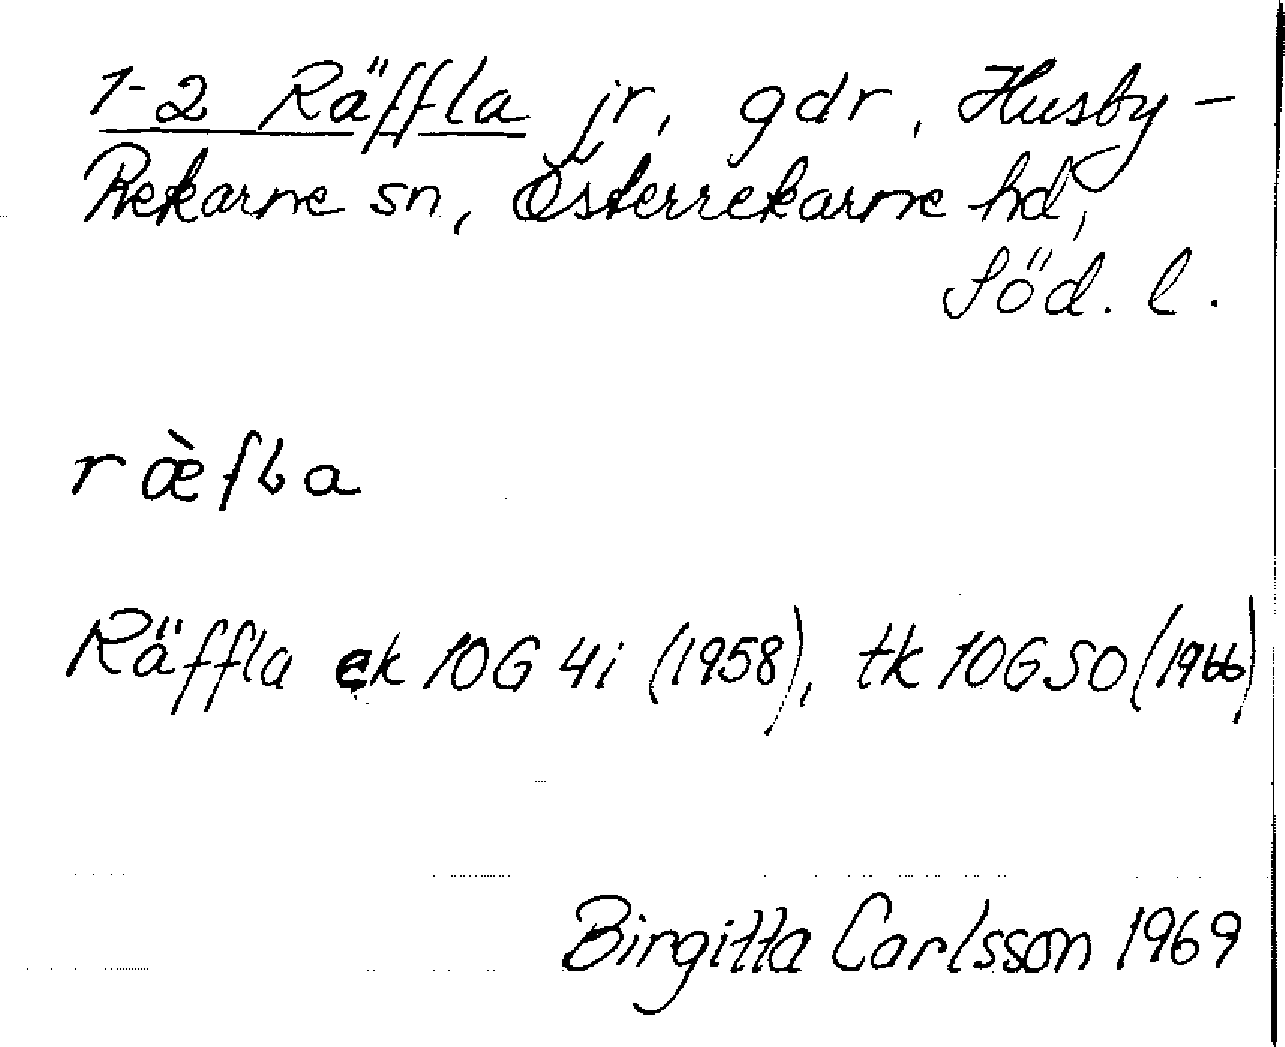 1-2 Räffla jr, gdr, Husby-
Rekarne sn, Österrekarne hd,
Söd. l.
ræ̀fla
Räffla ek 10G 4i (1958), tk 10G SO (1966)
Birgitta Carlsson 1969